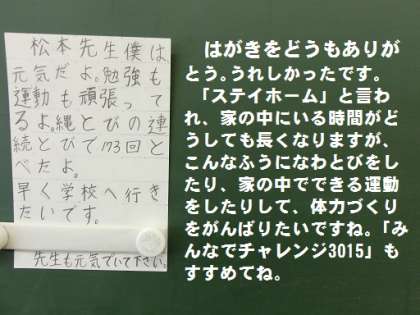 松本先生僕は、
元気だよ。勉強も
運動も頑張って
るよ。縄とびの連
続とびで173回と
べたよ。
早く学校へ行き
たいです。
先生も元気でいて下さい。
はがきをどうもありが
とう。うれしかったです。
「ステイホーム」と言わ
れ、家の中にいる時間がど
うしても長くなりますが、
こんなふうになわとびを
したり、家の中でできる運動
をしたりして、体力づくり
をがんばりたいですね。「み
んなでチャレンジ3015」も
すすめてね。